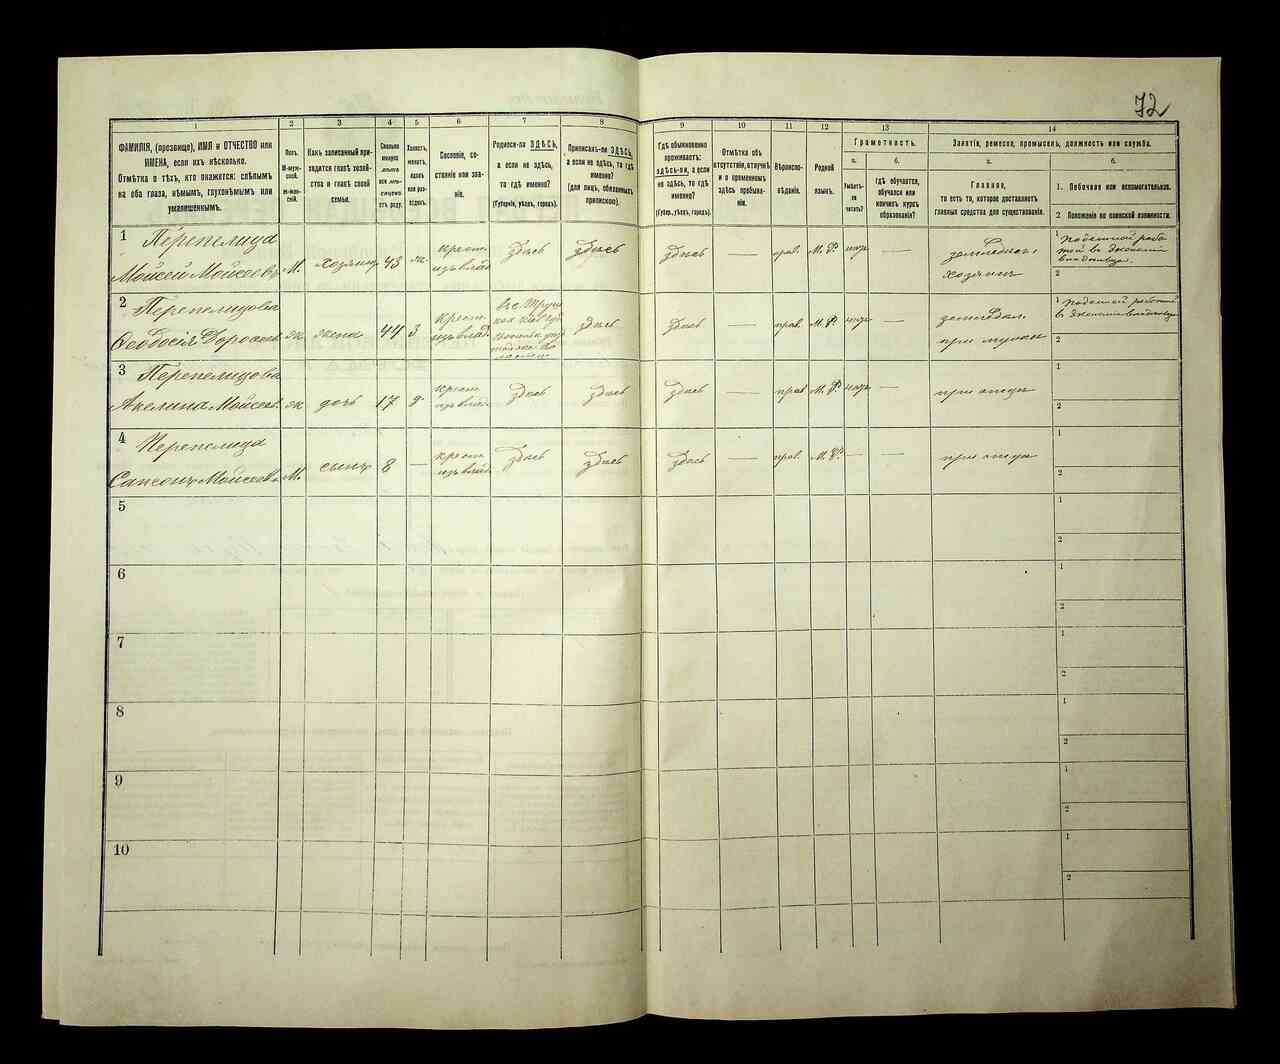 72
1
2
3
4
5
6
7
8
9
10
11
12
13
14
ФАМИЛІЯ, (прозвище), ИМЯ и ОТЧЕСТВО или
ИМЕНА, если ихъ нѣсколько.
Отмѣтка о тѣхъ, кто окажется: слѣпымъ
на оба глаза, нѣмымъ, глухонѣмымъ или
умалишеннымъ.
Полъ.
М-муж-
ской.
ж-жен-
скій.
Какъ записанный при-
ходится главѣ хозяй-
ства и главѣ своей
семьи.
Сколько
минуло
лѣтъ
или мѣ-
сяцевъ
отъ роду.
Холостъ,
женатъ,
вдовъ
или раз-
веденъ.
Сословіе, со-
стояніе или зва-
ніе.
Родился-ли ЗДѢСЬ,
а если не здѣсь,
то гдѣ именно?
(Губернія, уѣздъ, городъ).
Приписанъ-ли ЗДѢСЬ,
а если не здѣсь, то гдѣ
именно?
(для лицъ, обязанныхъ
припискою).
Гдѣ обыкновенно
проживаетъ:
здѣсь-ли, а если
не здѣсь, то гдѣ
именно?
(Губер., уѣздъ, городъ).
Отмѣтка объ
отсутствіи, отлучкѣ
и о временномъ
здѣсь пребыва-
ніи.
Вѣроиспо-
вѣданіе.
Родной
языкъ.
Грамотность.
а.
б.
Умѣетъ-
ли
читать?
гдѣ обучается,
обучался или
кончилъ курсъ
образованія?
Занятіе, ремесло, промыселъ, должность или служба.
а.
б.
Главное,
то есть то, которое доставляетъ
главныя средства для существованія.
1. Побочное или вспомогательное.
2 Положеніе по воинской повинности.
1 Перепелица
Мойсей Мойсеевъ М. хозяинъ 43 ж. крест. изъ влад. здѣсь здѣсь здѣсь — прав. М. Р. негр. — земледѣл. хозяинъ
1 Поденной рабо-
той въ Экономіи
владѣльца.
2
2 Перепелицова
Ѳеодосія жк. жена 44 З крест. изъ влад. здѣсь здѣсь — прав. М. Р. негр. — земледѣл. при мужѣ
1 Поденной работой
въ Экономіи владѣльца
2
3 Перепелицова
Акелина Мойсеев. жк. дочь 17 д. крест. изъ влад. здѣсь здѣсь здѣсь — прав. М. Р. негр. — при отцѣ
1
2
4 Перепелица
Самсонъ Мойсеевъ М. сынъ 8 — крест. изъ влад. здѣсь здѣсь здѣсь — прав. М. Р. — — при отцѣ
1
2
5
1
2
6
1
2
7
1
2
8
1
2
9
1
2
10
1
2